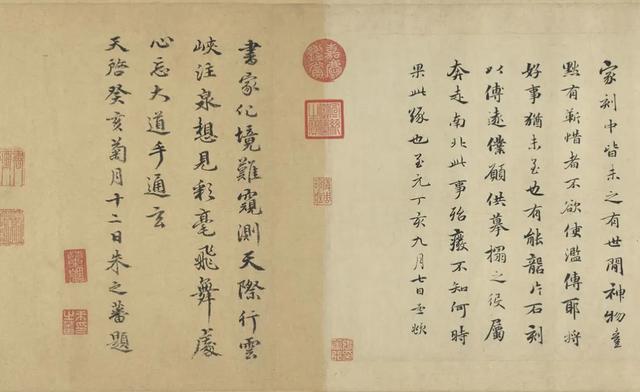 家刻中皆未之有世間神物豈
默有靳惜者不欲使濫傳耶將
好事猶未至也有能礱片石刻
以傳遠僕願供摹搨之役屬
奔走南北此事殆廢不知何時
果此緣也至元丁亥九月七日
書家化境難窺測天際行雲
峽注泉想見彩毫飛舞處
心忘大道手通玄
天啓癸亥菊月十二日朱之蕃題